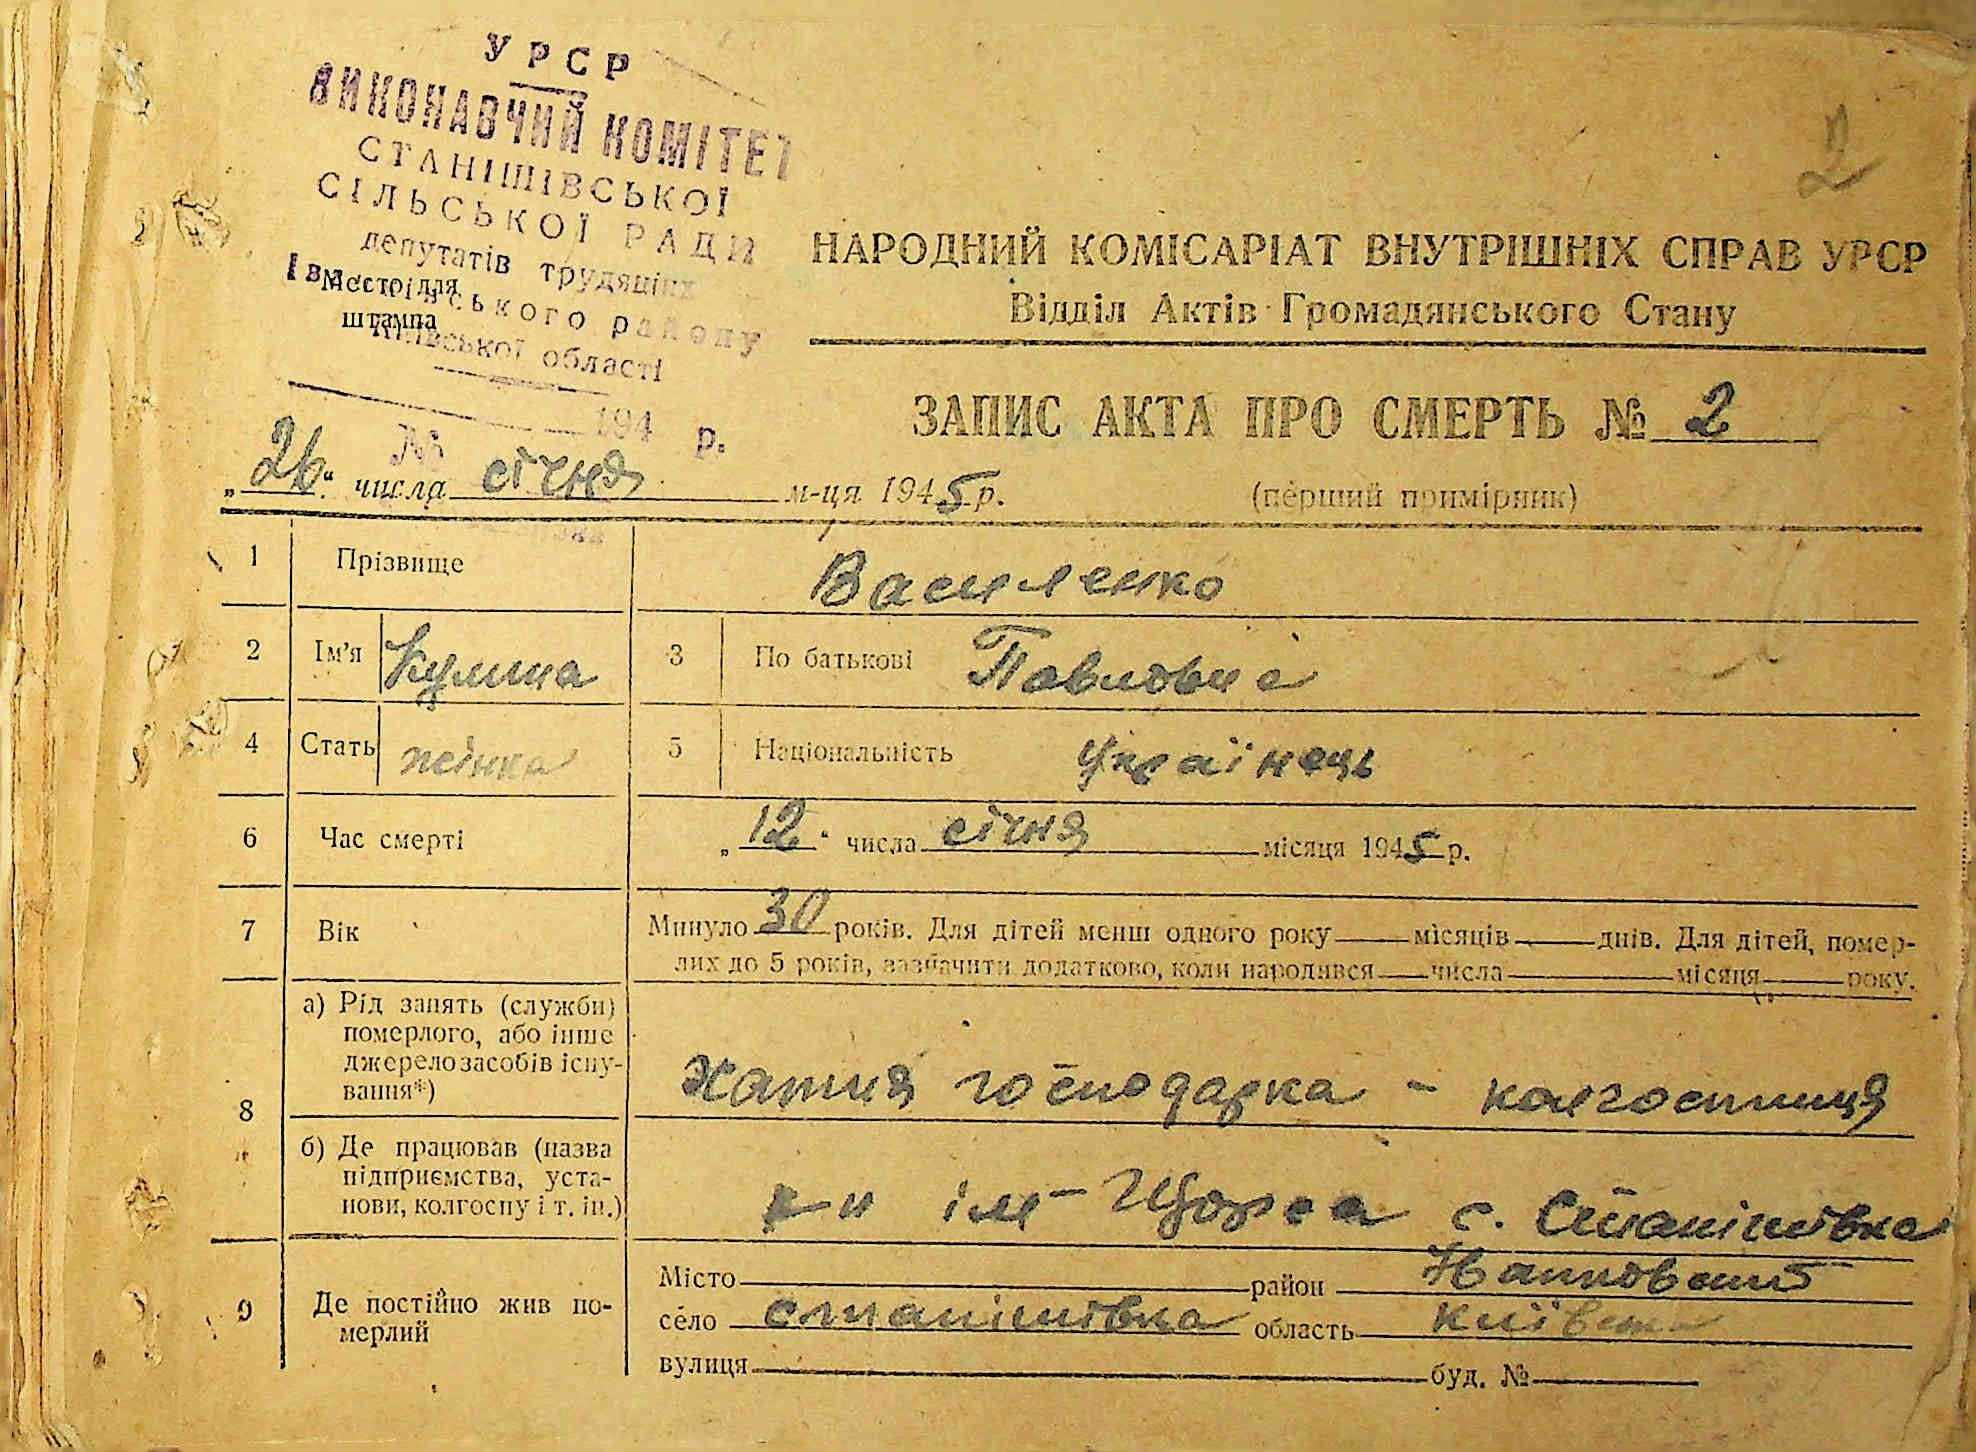 2
УРСР
ВИКОНАВЧИЙ КОМІТЕТ
СТАНІШІВСЬКОЇ
СІЛЬСЬКОЇ РАДИ
депутатів трудящих
ського району
Київської області
Место для
штампа
194 р.
№
НАРОДНИЙ КОМІСАРІАТ ВНУТРІШНІХ СПРАВ УРСР
Відділ Актів Громадянського Стану
ЗАПИС АКТА ПРО СМЕРТЬ № 2
„26“ числа січня м-ця 1945 р.
(перший примірник)
1 Прізвище Василенко
2 Ім’я Кулина 3 По батькові Павловна
4 Стать жінка 5 Національність Українець
6 Час смерті „12“ числа січня місяця 1945 р.
7 Вік Минуло 30 років. Для дітей менш одного року місяців днів. Для дітей, помер-
лих до 5 років, зазначити додатково, коли народився числа місяця року.
8 а) Рід занять (служби)
померлого, або інше
джерело засобів існу-
вання*)
Хатня господарка - колгоспниця
б) Де працював (назва
підприємства, уста-
нови, колгоспу і т. ін.)
ім Щорса с. Станішівка
9 Де постійно жив по-
мерлий
Місто район
село станішівка область Київська
вулиця буд. №